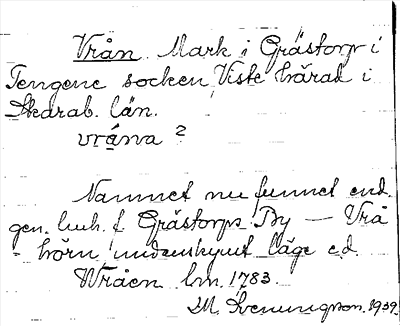 Vrån. Mark i Grästorp i
Tengene socken, Viste härad i
Skarab. län.
vrána ?
Namnet nu funnet end.
gen. t Grästorps By — Vrå
= hörn, undanskymt läge e.d.
Wråen 1783.
M. Svenungsson. 1939.